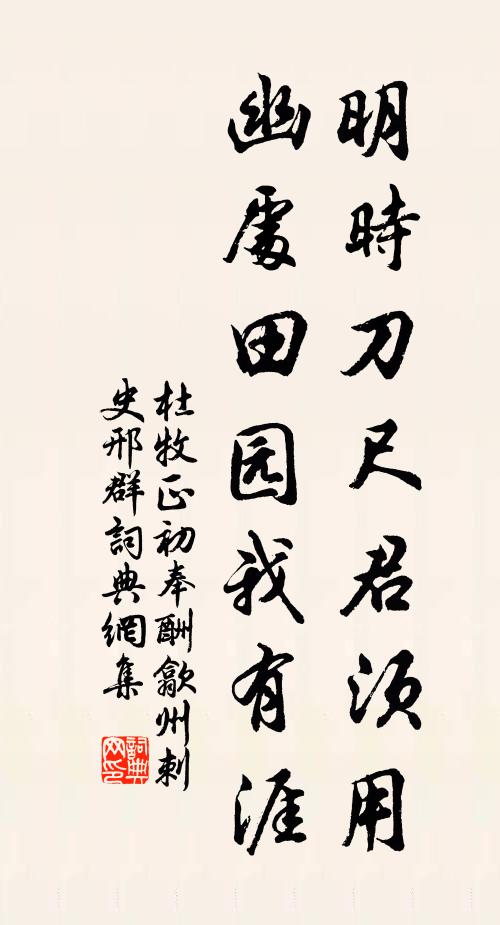 明時刀尺君須用
幽處田园我有涯
杜牧正初奉酬歙州刺
史邢群詞典網集
詞典